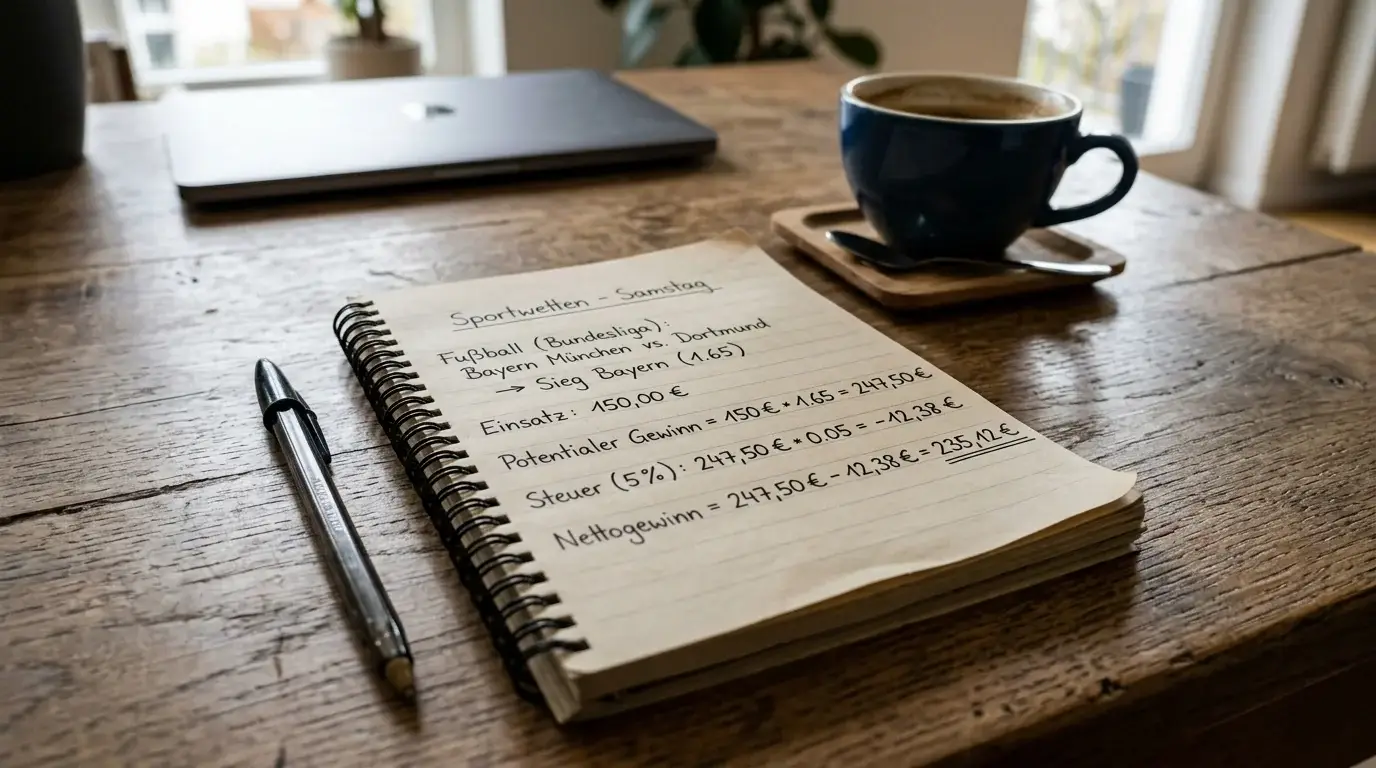 Sportwetten – Samstag
Fußball (Bundesliga):
Bayern München vs. Dortmund
→ Sieg Bayern (1.65)
Einsatz: 150,00 €
Potentialer Gewinn = 150 € * 1.65 = 247,50 €
Steuer (5%): 247,50 € * 0.05 = -12,38 €
Nettogewinn = 247,50 € - 12,38 € = 235,12 €